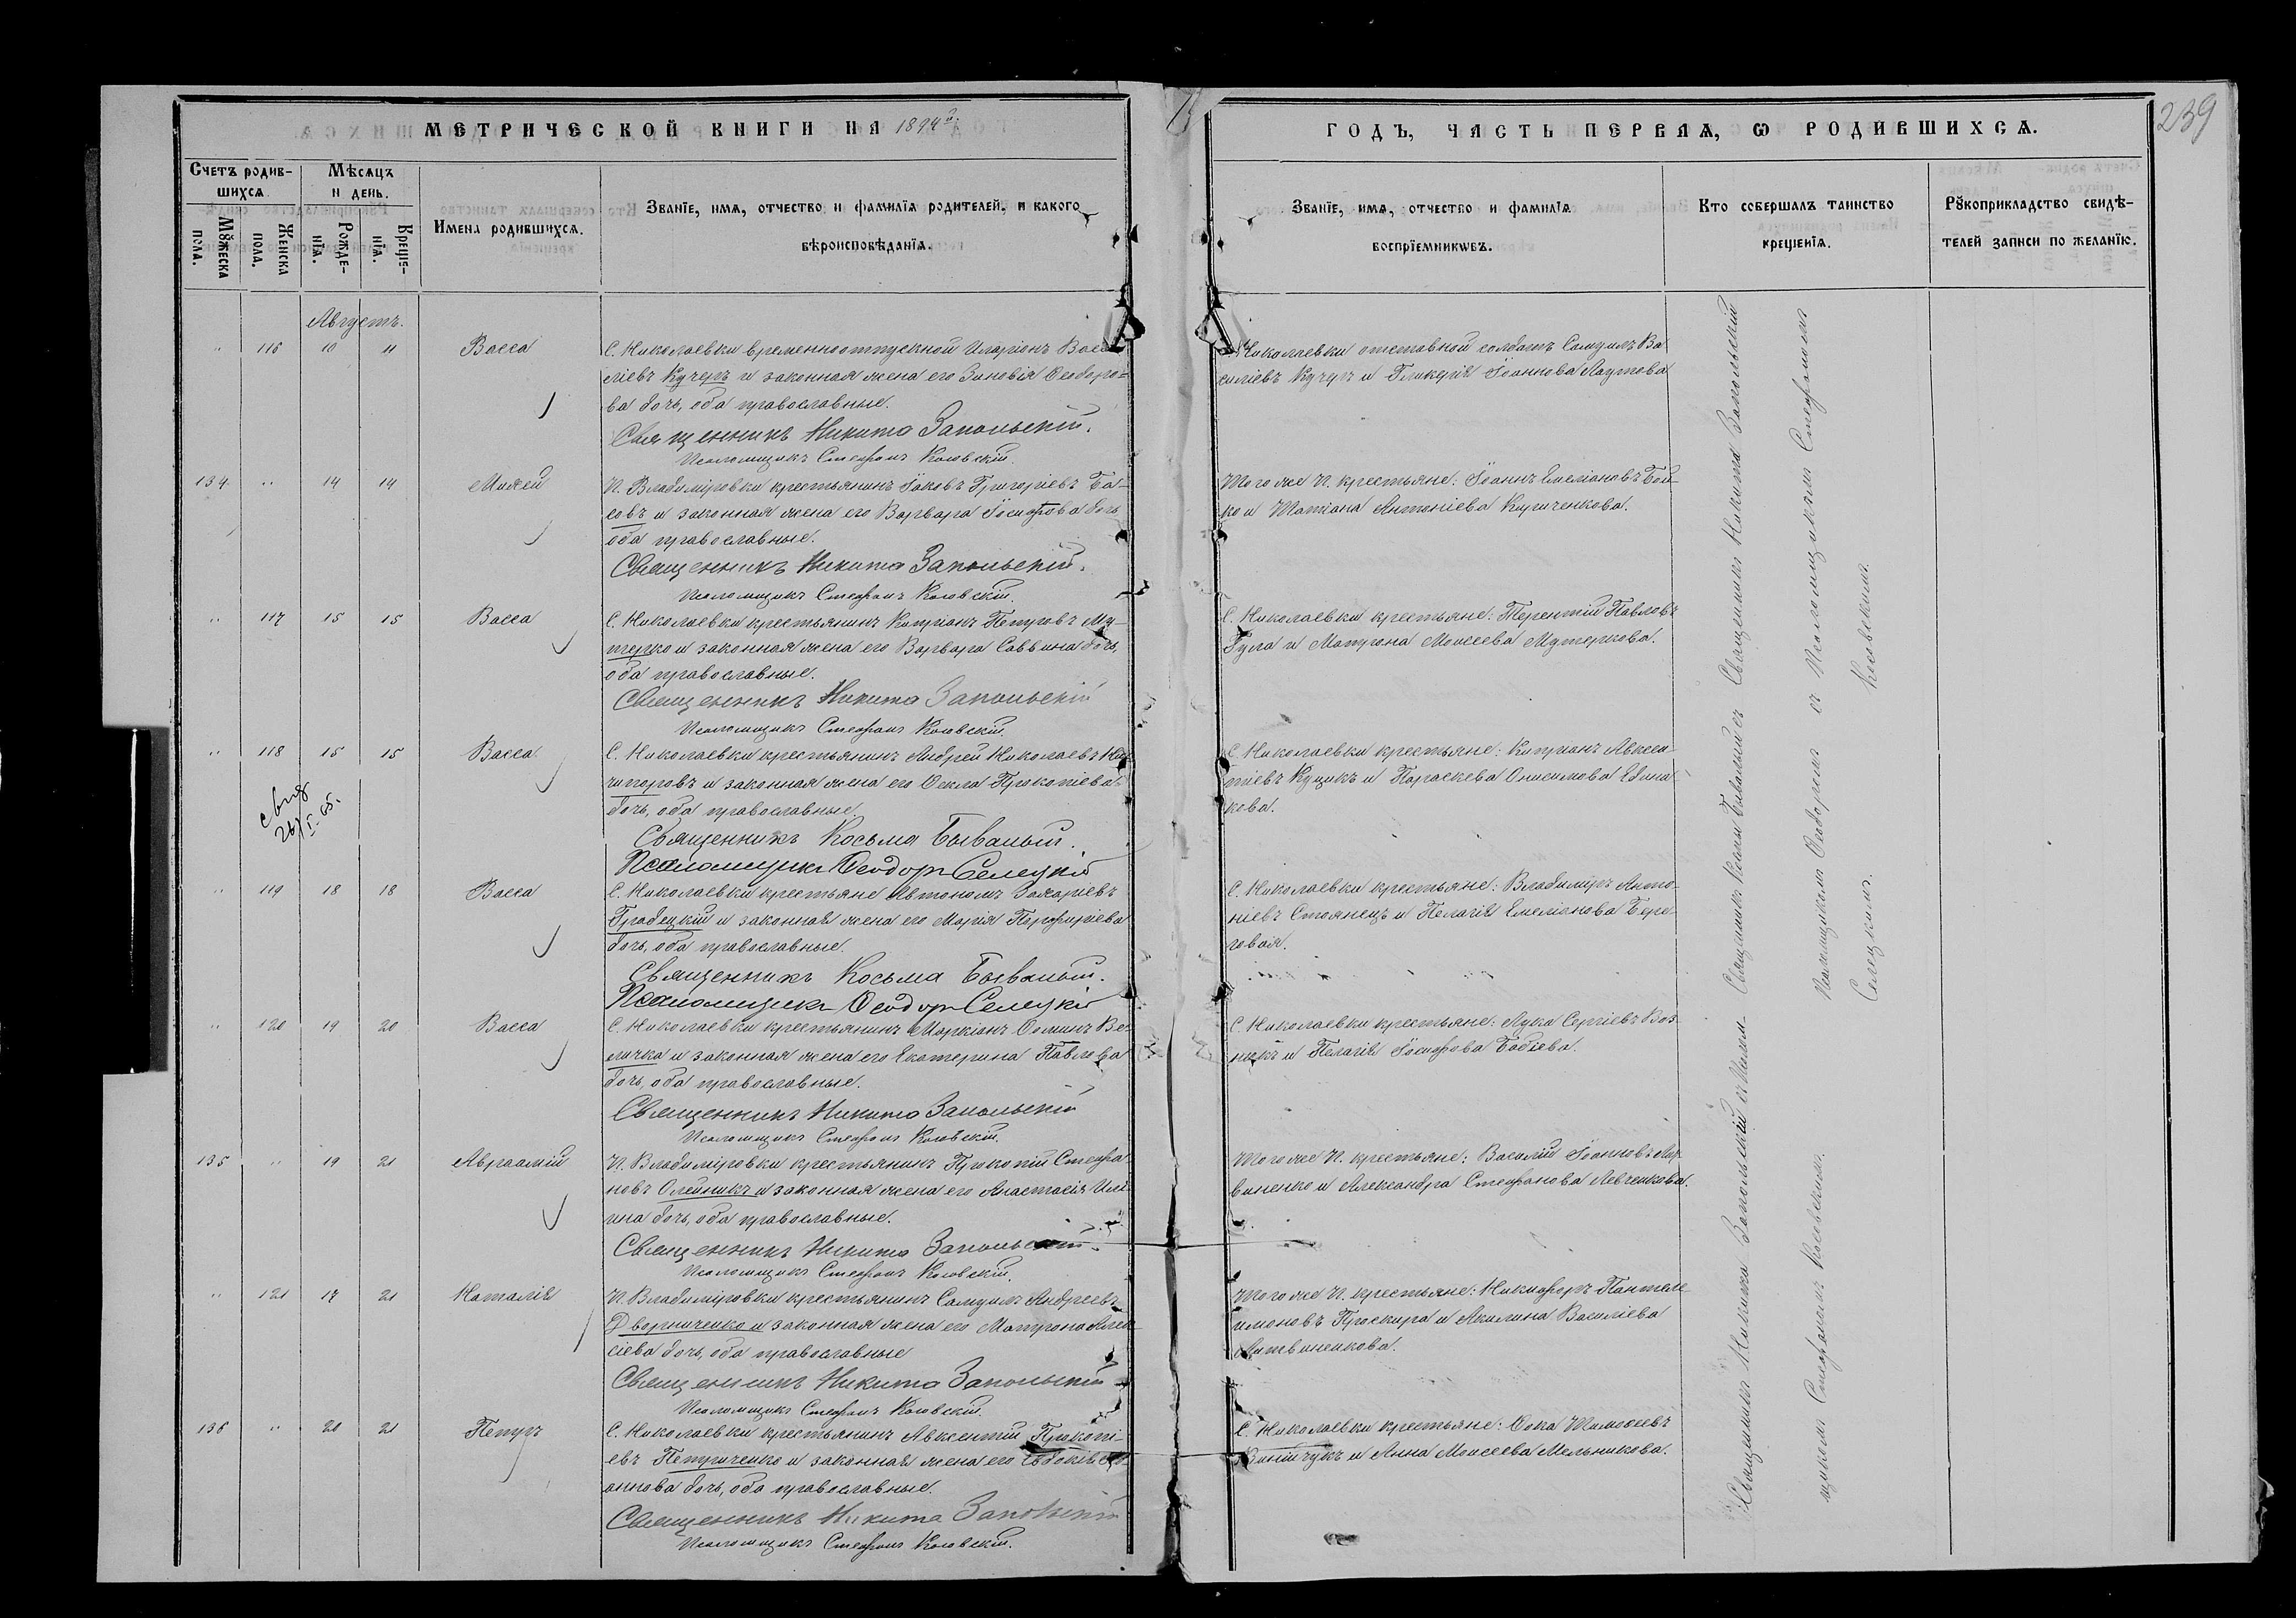 МЕТРИЧЕСКОЙ КНИГИ НА 1894 г.
ГОДЪ, ЧАСТЬ ПЕРВАЯ, Ѡ РОДИВШИХСѦ.
239
Счетъ родив-
шихсѧ.
Мѣсѧцъ
и день.
Мꙋжеска
пола.
Женска
пола.
Рожде-
нїѧ.
Креще-
нїѧ.
Имена родившихсѧ.
Званїе, имѧ, отчество и фамилїѧ родителей, и какого
вѣроисповѣданїѧ.
Званїе, имѧ, отчество и фамилїѧ
воспрїемникѡвъ.
Кто совершалъ таинство
крещенїѧ.
Рꙋкоприкладство свидѣ-
телей записи по желанїю.
Августъ.
" 116 10 11 Васса
С. Николаевки временноотпускной Иларіонъ Васи
ліевъ Кучеръ и законная жена его Зиновія Ѳеодоро=
ва дочь, оба православные.
Священникъ Никита Запольскій.
Псаломщикъ Стефанъ Косовскій.
С. Николаевки отставной солдатъ Самуилъ Ва
силіевъ Кучеръ и Гликерія Іоаннова
134. " 14 14 Мижей
П. Владиміровки крестьянинъ Іаковъ Григоріевъ Ба-
совъ и законная жена его Варвара Іосифова дочь,
оба православные.
Священникъ Никита Запольскій.
Псаломщикъ Стефанъ Косовскій.
Того же П. крестьяне: Іоаннъ Емеліановъ Бой-
ко и Татіана Антоніева Кириченкова.
" 117 15 15 Васса
С. Николаевки крестьянинъ Кипріанъ Петровъ Му-
терко и законная жена его Варвара Саввина дочь,
оба православные.
Священникъ Никита Запольскій
Псаломщикъ Стефанъ Косовскій.
С. Николаевки крестьяне: Терентій Павловъ
Гула и Матрона Моисеева Мутеркова.
" 118 15 15 Васса
С. Николаевки крестьянинъ Андрей Николаевъ Ни
чипоровъ и законная жена его Ѳекла Прокопіева
дочь, оба православные.
Священникъ Косьма Бывалый.
Псаломщикъ Ѳеодоръ Селецкій
С. Николаевки крестьяне: Кипріанъ Авксен-
тіевъ Куцикъ и Параскева Онисимова
кова.
" 119 18 18 Васса
С. Николаевки крестьяне Автономъ Захаріевъ
Градецкій и законная жена его Марія Порфиріева
дочь, оба православные.
Священникъ Косьма Бывалый.
Псаломщикъ Ѳеодоръ Селецкій
С. Николаевки крестьяне: Владиміръ Анто-
ніевъ Стоянецъ и Пелагія Емеліанова Бере-
говая.
" 120 19 20 Васса
С. Николаевки крестьянинъ Маркіанъ Ѳоминъ Ве-
личка и законная жена его Екатерина Павлова
дочь, оба православные.
Священникъ Никита Запольскій
Псаломщикъ Стефанъ Косовскій.
С. Николаевки крестьяне: Лука Сергіевъ Воз-
никъ и Пелагія Іосифова Бабіева.
135 " 19 21 Авраамій
П. Владиміровки крестьянинъ Прокопій Стефа-
новъ Олейникъ и законная жена его Анастасія Илі-
ина дочь, оба православные.
Священникъ Никита Запольскій.
Псаломщикъ Стефанъ Косовскій.
Того же П. крестьяне: Василій Іоанновъ Ли
виненко и Александра Стефанова Левченкова.
" 121 17 21 Наталія
П. Владиміровки крестьянинъ Самуилъ Андреевъ
Дворниченко и законная жена его Матрона Алек
сіева дочь, оба православные
Священникъ Никита Запольскій
Псаломщикъ Стефанъ Косовскій.
Того же П. крестьяне: Никифоръ Пантеле
имоновъ Проскура и Акилина Василіева
Литвиненкова.
136 " 20 21 Петръ
С. Николаевки крестьянинъ Авксентій Прокопі-
евъ Петриченко и законная жена его Евдокія Іо-
аннова дочь, оба православные.
Священникъ Никита Запольскій
Псаломщикъ Стефанъ Косовскій.
С. Николаевки крестьяне: Ѳока Тимоѳеевъ
и Анна Моисеева Мельникова.
Священникъ Никита Запольскій съ Псалом-
щикомъ Стефаномъ Косовскимъ.
Священникъ Косма Бывалый съ
Псаломщикомъ Ѳеодоромъ
Селецкимъ.
Священникъ Никита Запольскій
съ Псаломщикомъ Стефаномъ
Косовскимъ.